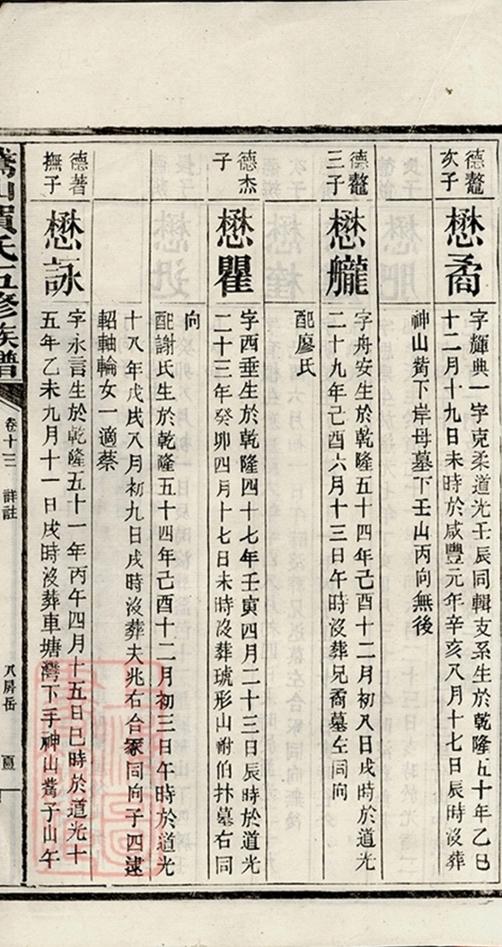 德鼇
次子
懋矞
字輝典一字克柔道光壬辰同輯支系生於乾隆五十年乙巳
十二月十九日未時於咸豐元年辛亥八月十七日辰時沒葬
神山觜下岸母墓下壬山丙向無後
德鼇
三子
懋艫
字舟安生於乾隆五十四年己酉十二月初八日戌時於道光
二十九年己酉六月十三日午時沒葬兄矞墓左同向
配廖氏
德杰
子
懋瞿
字西垂生於乾隆四十七年壬寅四月二十三日辰時於道光
二十三年癸卯四月十七日未時沒葬琥形山祔伯林墓右同
向
配謝氏生於乾隆五十四年己酉十二月初三日午時於道光
十八年戊戌八月初九日戌時沒葬夫兆右合冢同向子四逮
軺軸輪女一適蔡
德著
撫子
懋詠
字永言生於乾隆五十一年丙午四月十五日巳時於道光十
五年乙未九月十一日戌時沒葬車塘灣下手神山觜子山午
山黃氏五修族譜
卷十三
詳註
八房岳